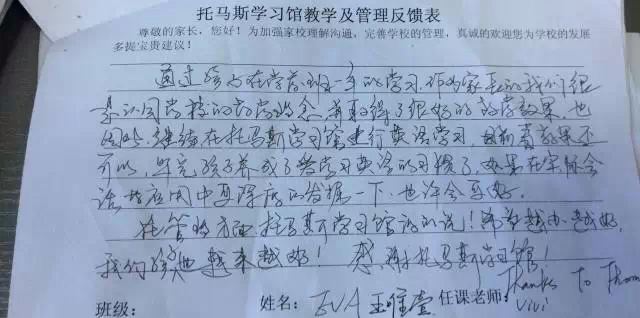 托马斯学习馆教学及管理反馈表
尊敬的家长，您好！为加强家校理解沟通，完善学校的管理，真诚的欢迎您为学校的发展
多提宝贵建议！
通过孩子在学前班一年的学习，作为家长的我们很
认同学校的教学理念，并取得了很好的教学效果，也
因此，继续在托马斯学习馆进行英语学习，目前看效果还
可以，毕竟孩子养成了学习英语的习惯了，如果在实际会
话与应用中再深度的发掘一下，也许会更好。
托管的方面托马斯学习馆没的说！希望越办越好，
我们的孩子也越来越好！感谢托马斯学习馆！
班级： 姓名：EVA 王唯壹 任课老师：Thanks To Thom
Vivi